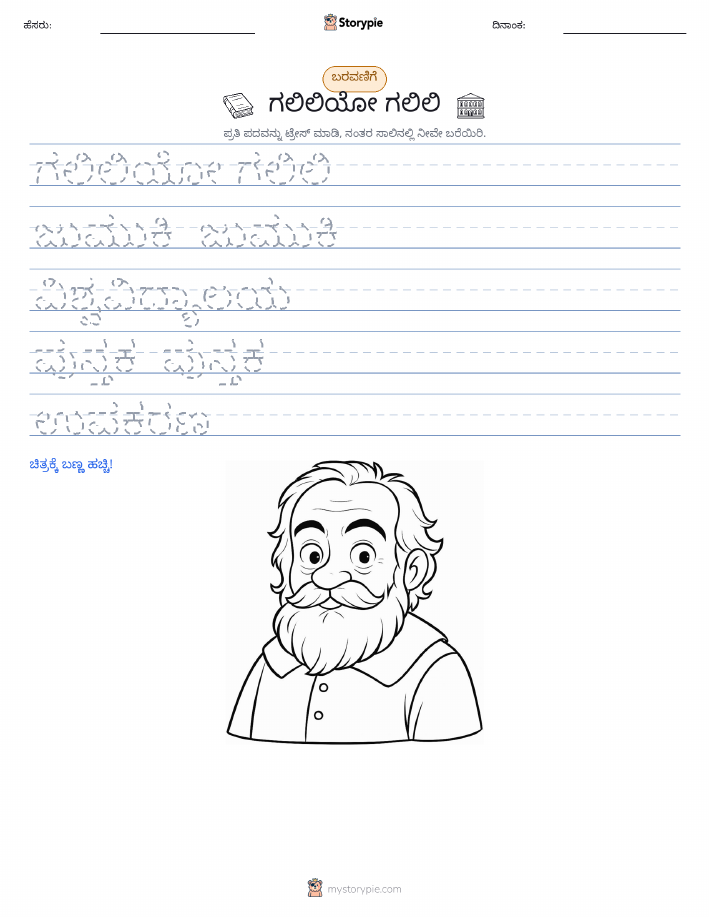 ಹೆಸರು:
Storypie
ದಿನಾಂಕ:
ಬರವಣಿಗೆ
ಗಲಿಲಿಯೋ ಗಲಿಲಿ
ಪ್ರತಿ ಪದವನ್ನು ಟ್ರೇಸ್ ಮಾಡಿ, ನಂತರ ಸಾಲಿನಲ್ಲಿ ನೀವೇ ಬರೆಯಿರಿ.
ಗಲಿಲಿಯೋ ಗಲಿಲಿ
ವಿಶ್ವವಿದ್ಯಾಲಯ
ಪುಸ್ತಕ ಪುಸ್ತಕ
ಉಪಕರಣ
ಚಿತ್ರಕ್ಕೆ ಬಣ್ಣ ಹಚ್ಚಿ!
mystorypie.com